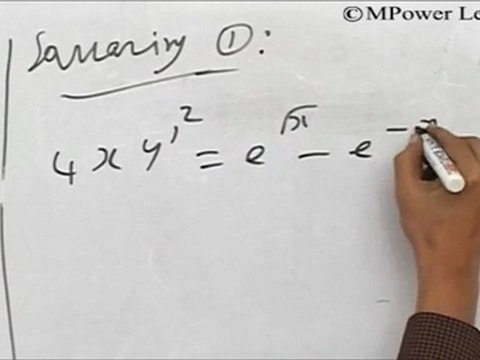 © MPower Le
Squaring ①:
4xy'² = e^√x - e^-